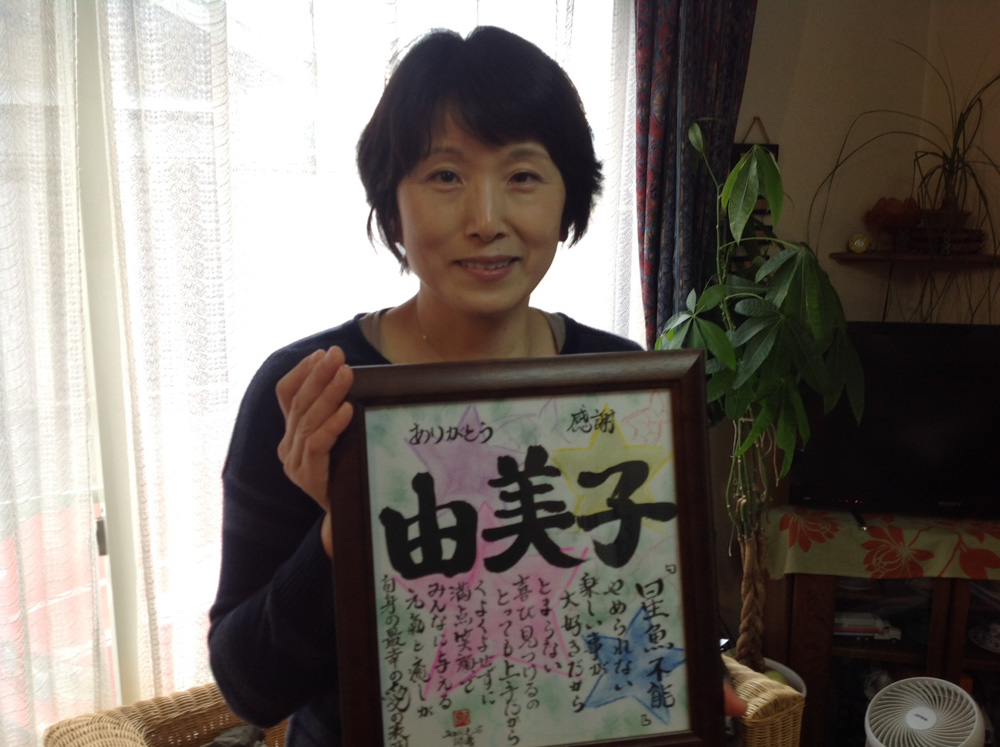 ありがとう
感謝
由美子
やめられない
楽しい事が
大好きだから
とまらない
喜び見つけるの
とっても上手だから
くよくよせずに
満点笑顔で
みんなに与える
元氣と癒しが
自身の最幸の愛の表現
SONY